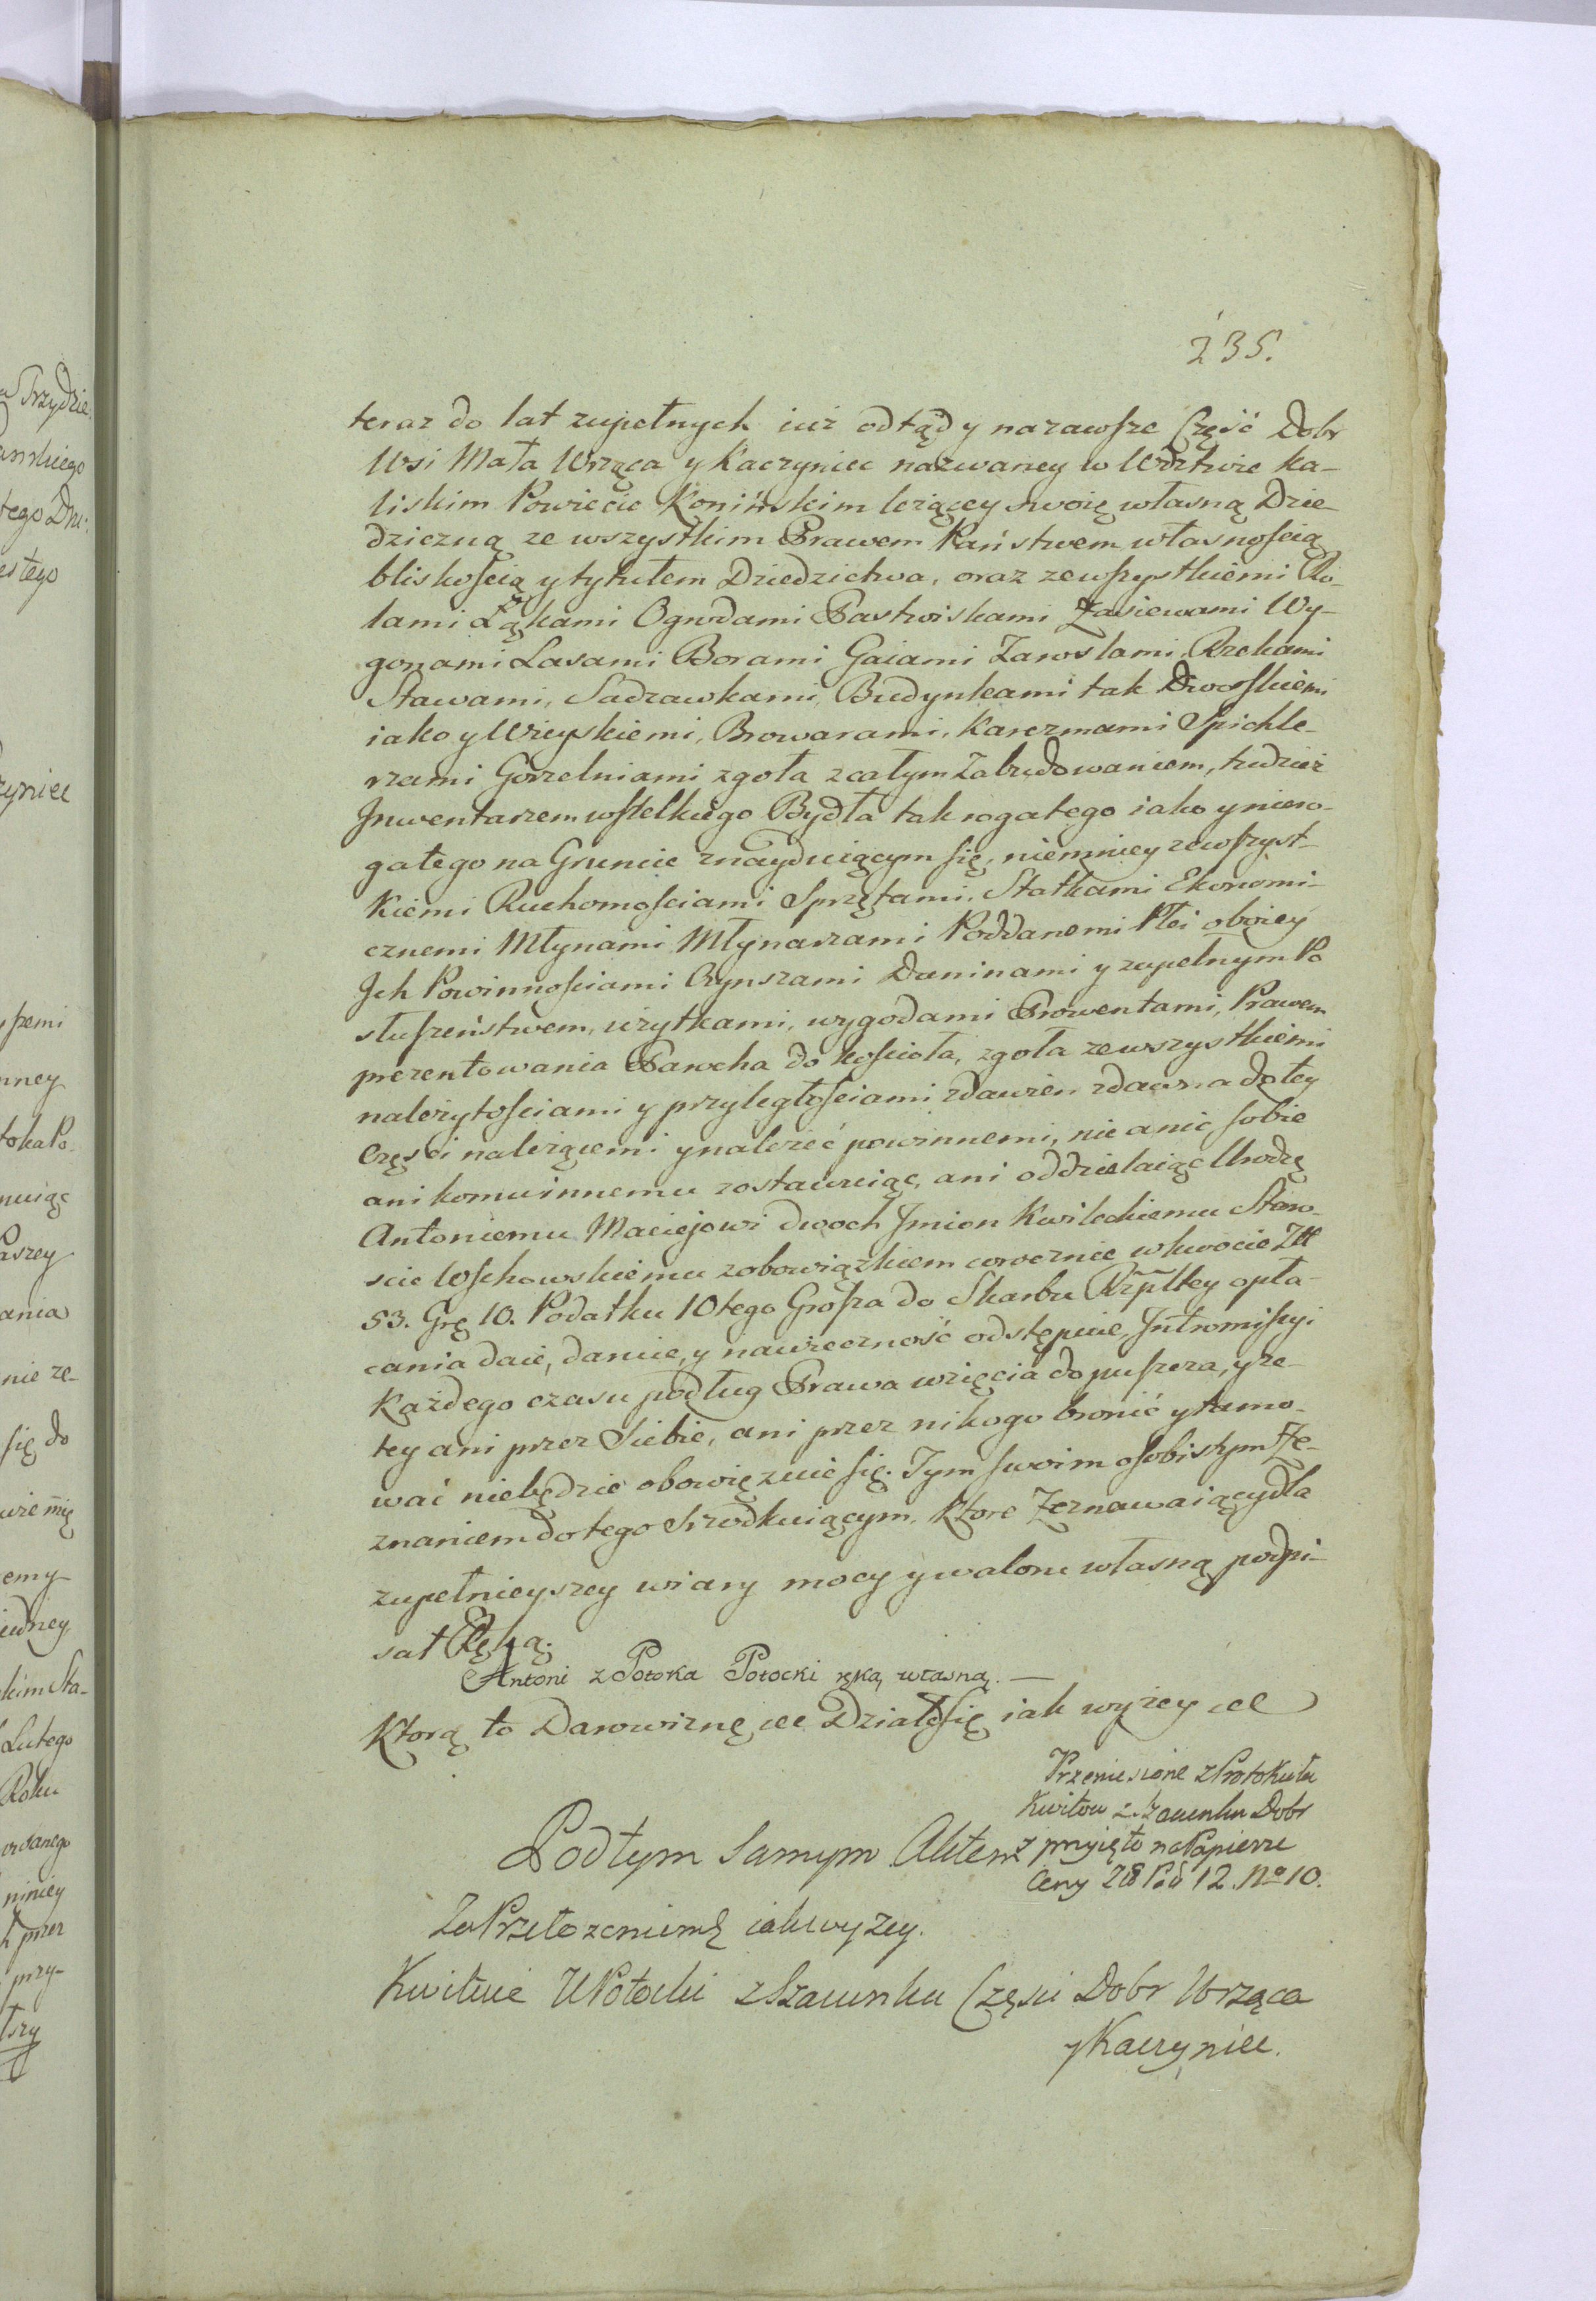 235.
teraz do lat zupełnych iuż odtąd y nazawsze Część Dobr
Wsi Mała Wrząca y Kaczyniec nazwaney w Wdztwie Ka-
liskim Powiecie Konińskim leżącey swoię własną Dzie-
dziczną ze wszystkim Prawem Państwem własnością
bliskością y tytułem Dziedzictwa, oraz zewszystkiemi Ro-
lami Łąkami Ogrodami Pastwiskami Zasiewami Wy-
gonami Lasami Borami Gaiami Zaroslami, Rzekami
Stawami, Sadzawkami, Budynkami tak Dworskiemi
iako y Wieyskiemi, Browarami, Karczmami Spichle-
rzami Gorzelniami zgoła z całym Zabudowaniem, tudzież
Inwentarzem wszelkiego Bydła tak rogatego iako y niero-
gatego na Gruncie znayduiącym się, niemniey zewszyst-
kiemi Ruchomościami Sprzętami, Statkami Ekonomi-
cznemi Młynami Młynarzami Poddanemi Płci oboiey
Ich Powinnościami Czynszami Daninami y zupełnym Po
słuszeństwem, użytkami, wygodami Prowentami, Prawem
prezentowania Parocha do kościoła, zgoła zewszystkiemi
należytościami y przyległościami zdawien zdawna do tey
Części należącemi y należeć powinnemi, nic a nic sobie
ani komu innemu zostawuiąc, ani oddzielaiąc Urodzę
Antoniemu Maciejowi dwoch Imion Kwileckiemu Staro-
scie Wschowskiemu z obowiązkiem corocznie w kwocie Złł
53. Grę 10. Podatku 10tego Grosza do Skarbu Rzpltey opła-
cania daie, daruie, y nawieczność odstępuie, Intromissyi
Każdego czasu podług Prawa wzięcia dopuszcza, y że
tey ani przez Siebie, ani przez nikogo bronić y tamo-
wać niebędzie obowięzuie się. Tym swoim osobistym Ze-
znaniem do tego srzodkuiącym, Ktore Zeznawaiący dla
zupełnieyszey wiary mocy y waloru własną podpi-
sał Ręką.
Antoni z Potoka Potocki ręką własną. —
Ktorą to Darowiznę etc Działo się iak wyżey etc
Przeniesione z Protokułu
Kwitow z Szacunku Dobr
przyięto na Papierze
Ceny 28 Pod 12. No 10.
Pod tym samym Aktem
Za Przełożeniem iak wyżey.
Kwituie U Potocki z Szacunku Części Dobr Wrząca
y Kaczyniec.